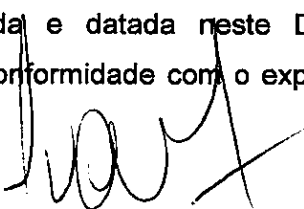 da e datada neste D
onformidade com o exp